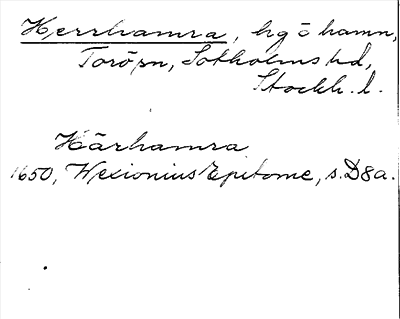 Herrhamra, hg o hamn,
Torö sn, Sotholms hd,
Stockh. l.
Härhamra
1650, Wexionius Epitome, s. D8a.